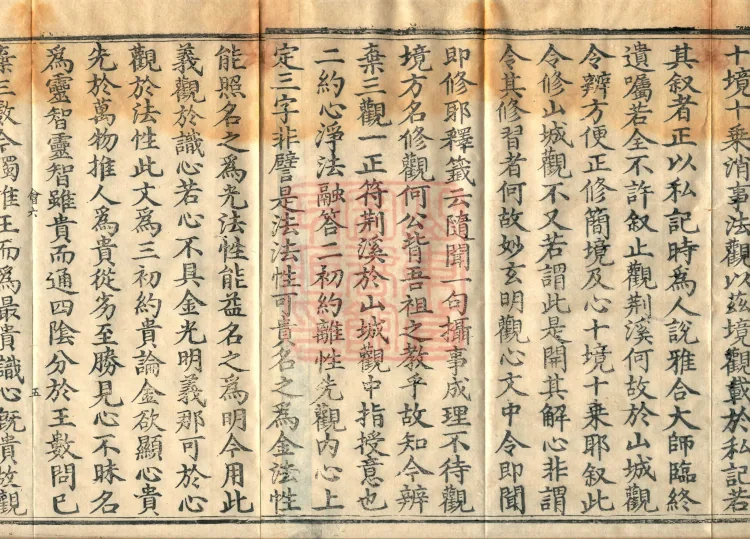 十境十乘消事法觀以玆境觀載於私記若
其叙者正以私記時爲人說雅合大師臨終
遺囑若全不許叙止觀荆溪何故於山城觀
令辨方便正修簡境及心十境十乘耶叙此
令修山城觀不又若謂此是開其解心非謂
令其修習者何故妙玄明觀心文中令即聞
即修耶釋籤云隨聞一句攝事成理不待觀
境方名修觀何公背吾祖之教乎故知今辨
棄三觀一正符荆溪於山城觀中指授意也
二約心淨法融答二初約離性先觀內心上
定三字非譬是法法性可貴名之為金法性
能照名之爲光法性能益名之爲明今用此
義觀於識心若心不具金光明義那可於心
觀於法性此文爲三初約貴論金欲顯心貴
先於萬物推人爲貴從劣至勝見心不昧名
會六
五
爲靈智靈智雖貴而通四陰分於王數問已
棄三數今獨推王而爲最貴識心旣貴故觀